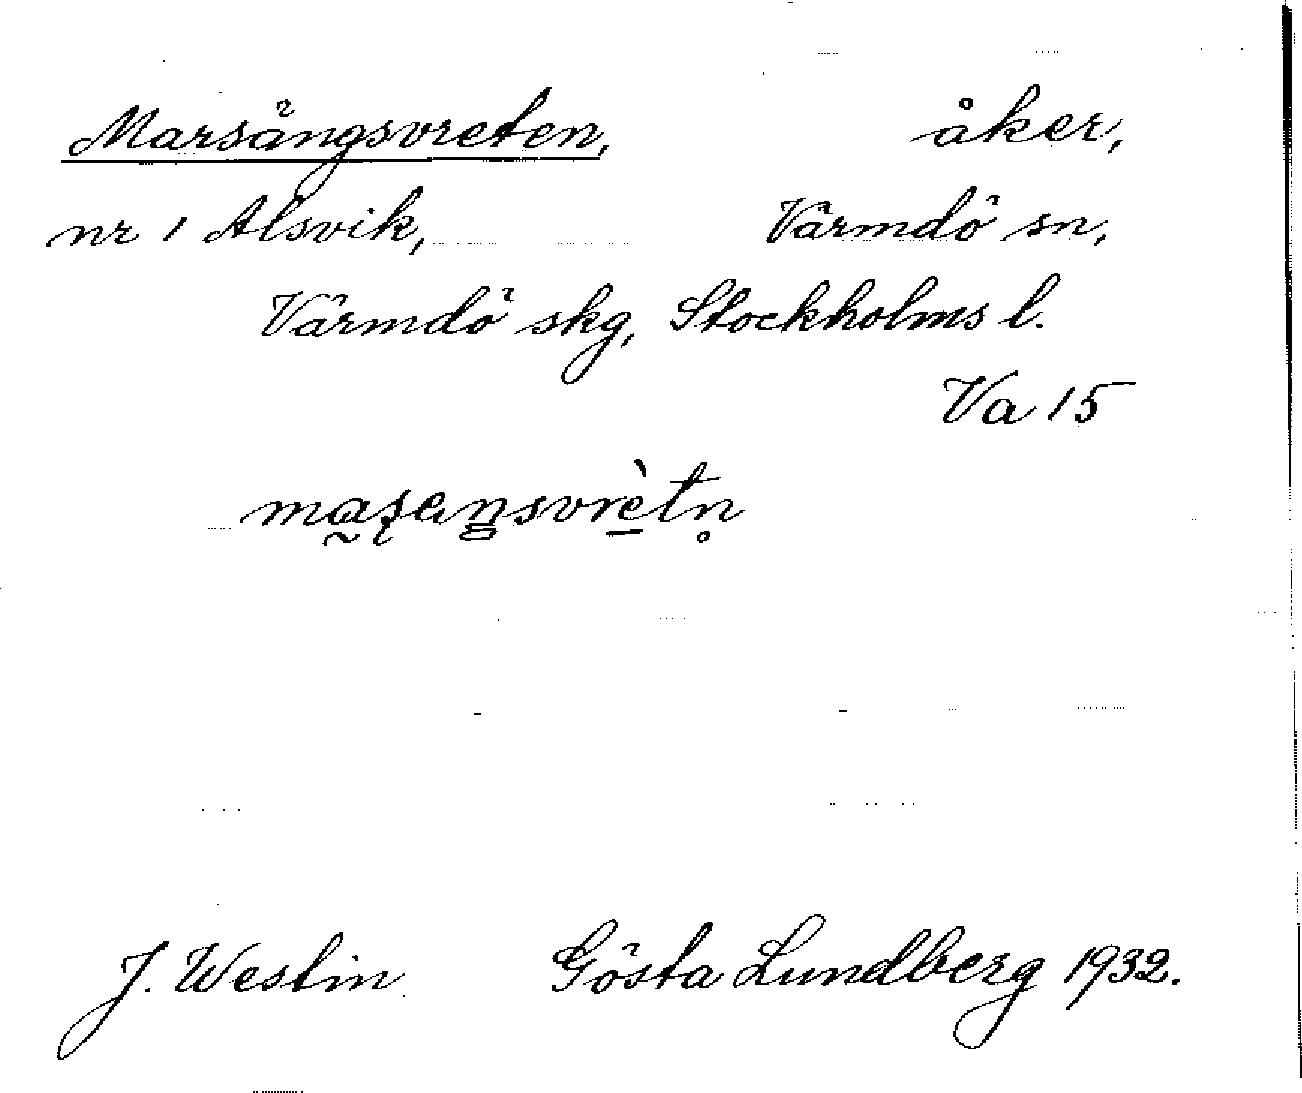 Marsängsvreten, åker,
nr 1 Alsvik, Värmdö sn,
Värmdö skg, Stockholms l.
Va 15
masaŋsvrètn̥
J. Westin Gösta Lundberg 1932.